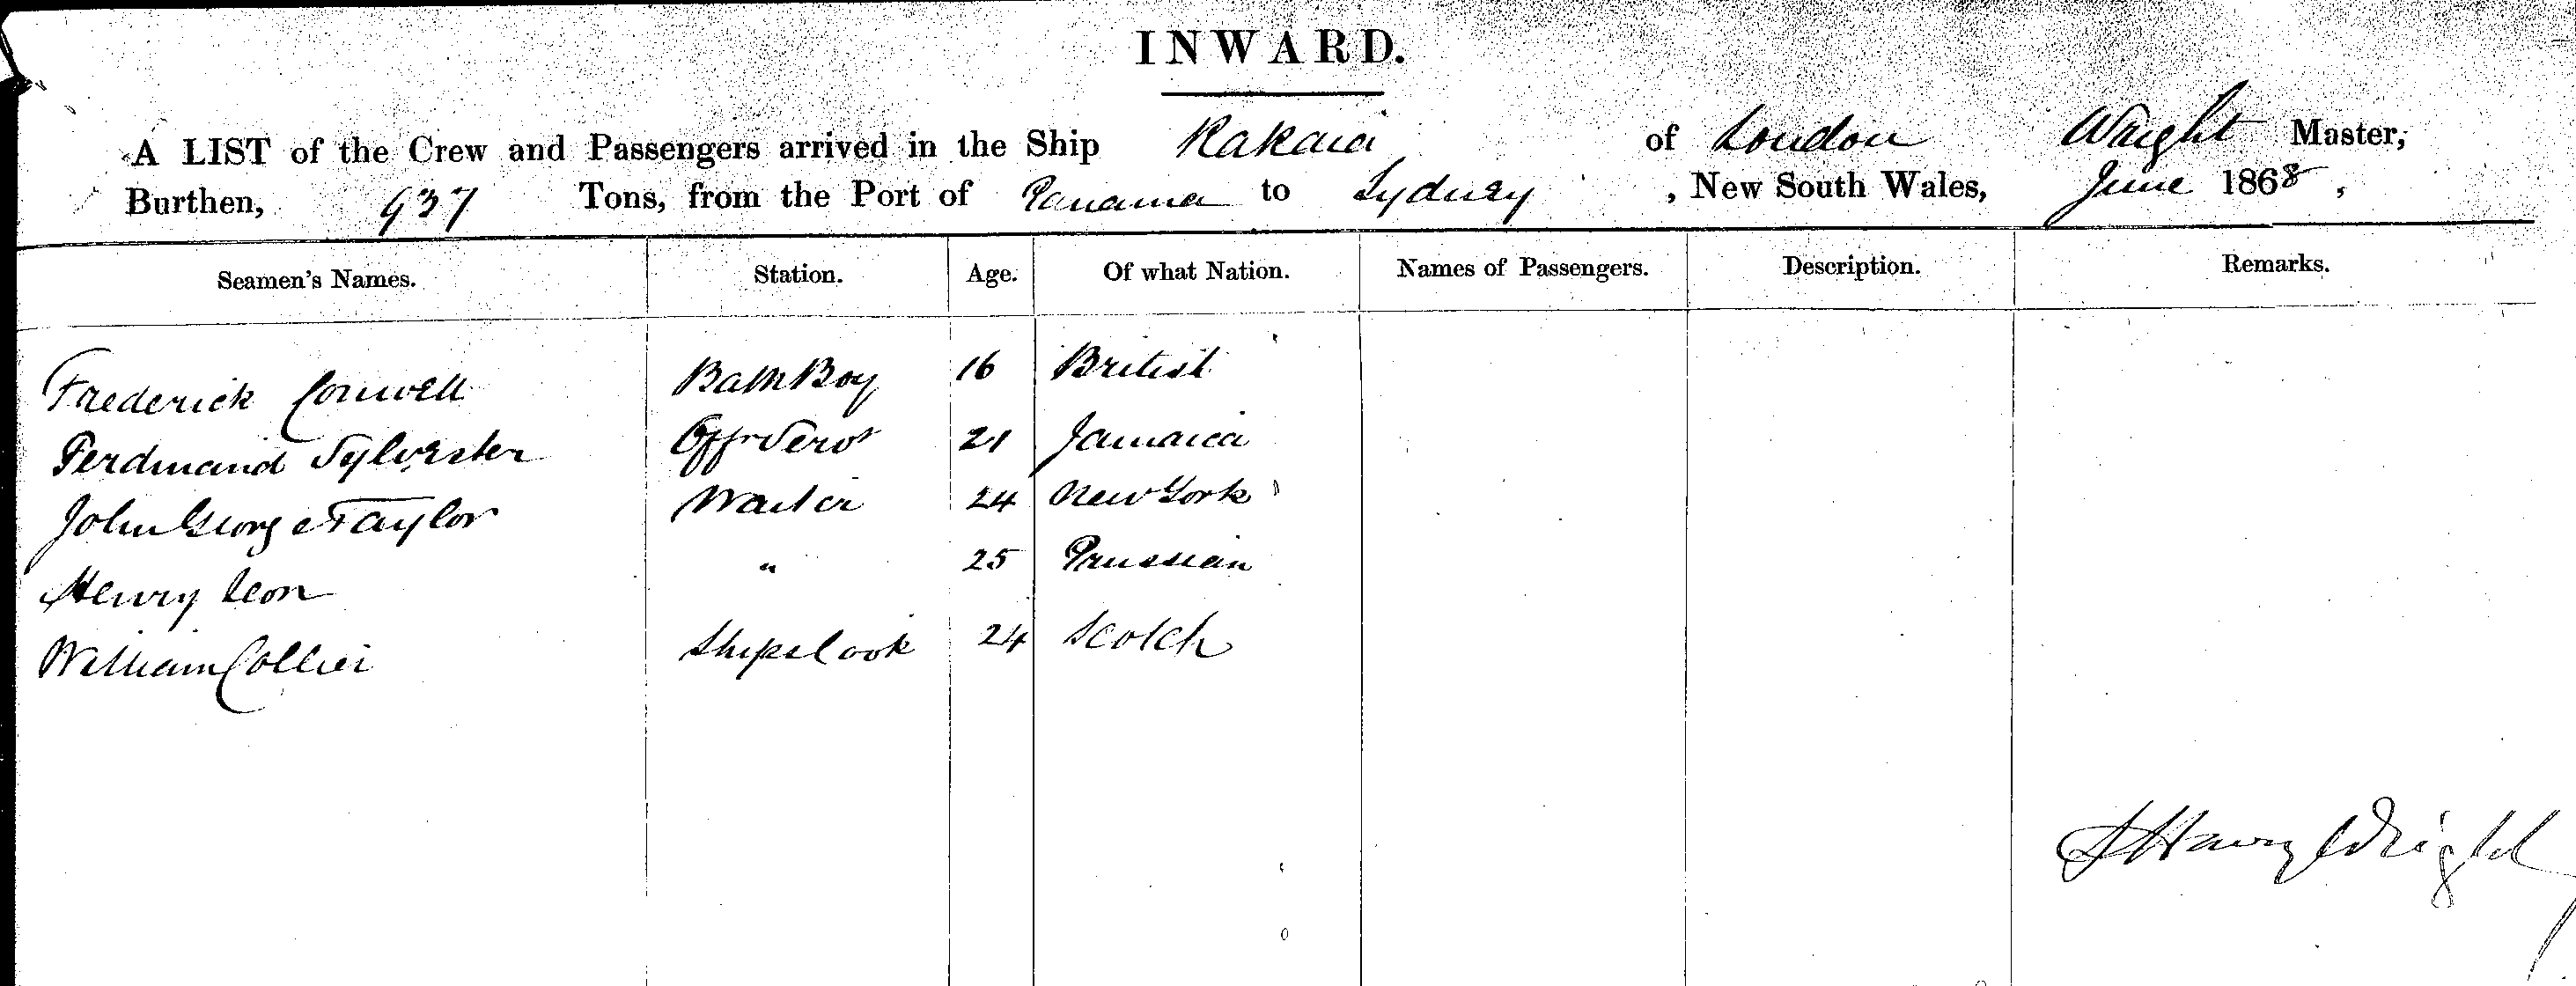 INWARD.
A LIST of the Crew and Passengers arrived in the Ship Rakaia of London Wright Master,
Burthen, 937 Tons, from the Port of Panama to Sydney, New South Wales, June 1868,
Seamen's Names. Station. Age. Of what Nation. Names of Passengers. Description. Remarks.
Frederick Cornwell Bath Boy 16 British
Ferdinand Sylvester Offrs Servt 21 Jamaica
John George Taylor Waiter 24 New York
Henry Leon " 25 Prussian
William Collier Ships Cook 24 Scotch
Henry Wright